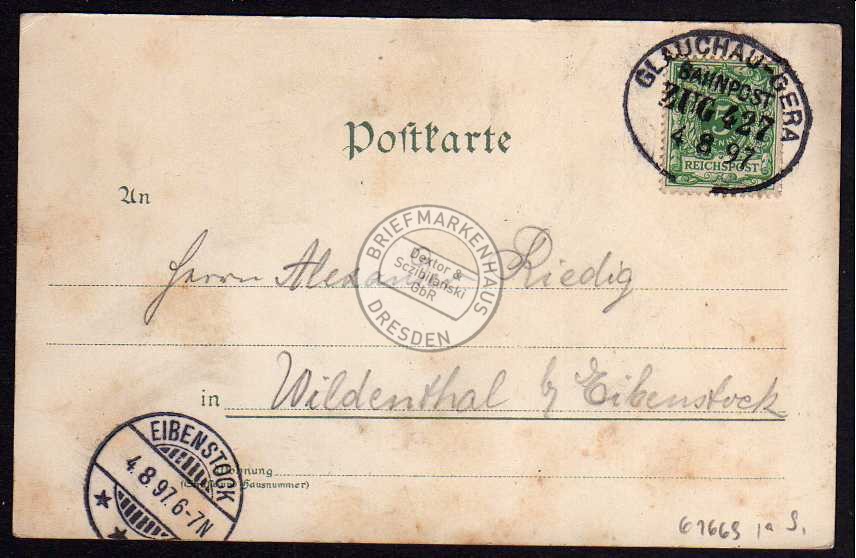 Postkarte
GLAUCHAU-GERA
BAHNPOST
ZUG 427
4 8 97
5
REICHSPOST
An
Herrn Alexander Riedig
BRIEFMARKENHAUS
Dextor &
Sczibilanski
GbR
DRESDEN
in Wildenthal by Eibenstock
EIBENSTOCK
4.8.97.6-7N
Wohnung
(Straße und Hausnummer)